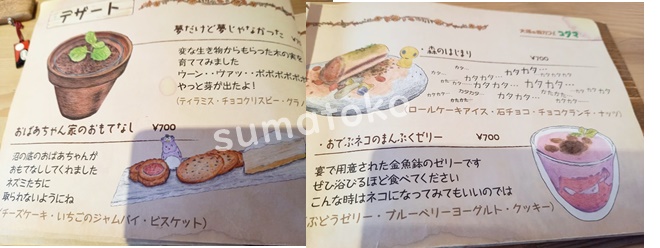 デザート
夢だけど夢じゃなかった
変な生き物からもらった木の実を
育ててみました
ウーン・・ウァッ・・ポポポポポ
やっと芽が出たよ!
(ティラミス・チョコクリスピー・グラノ
おばあちゃん家のおもてなし ¥700
沼の底のおばあちゃんが
おもてなししてくれました
ネズミたちに
取られないようにね
チーズケーキ・いちごのジャムパイ・ビスケット)
大酒&森カフェ コダマ
・森のはじまり ¥700
カタ… カタカタ… カタカタ…
カタカタ… カタカタ… カタカタ…
(ロールケーキアイス・石チョコ・チョコクランチ・ナッツ)
・おでぶネコのまんぷくゼリー ¥700
宴で用意された金魚鉢のゼリーです
ぜひ浴びるほど食べてください
こんな時はネコになってみてもいいのでは
ぶどうゼリー・ブルーベリーヨーグルト・クッキー)
sumatoke